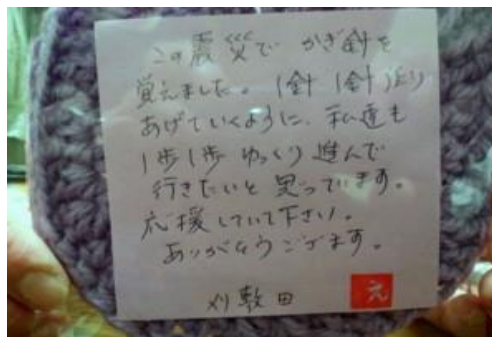 この震災で かぎ針を
覚えました。1針1針辺り
あげていくように、私達も
1歩1歩 ゆっくり 進んで
行きたいと思っています。
応援していて下さい。
ありがとうございます。
刈敷田
元